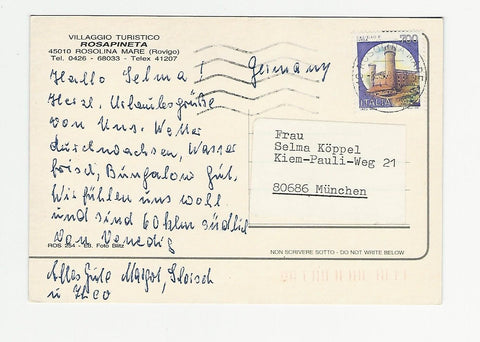 VILLAGGIO TURISTICO
ROSAPINETA
45010 ROSOLINA MARE (Rovigo)
Tel. 0426 - 68033 - Telex 41207
700
ITALIA
Hallo Selma! Germany
Herzl. Urlaubsgrüße
von Uns. Wetter
durchwachsen, Wasser
frisch, Bungalow Gut.
Wir fühlen uns wohl
und sind 60 klm südlich
von Venedig
Frau
Selma Köppel
Kiem-Pauli-Weg 21
80686 München
ROS 254 - Ed. Foto Blitz
NON SCRIVERE SOTTO - DO NOT WRITE BELOW
Alles Gute Margot,
u